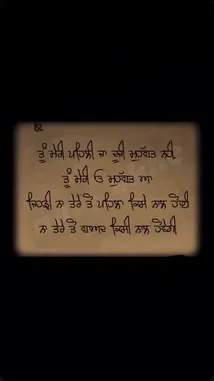 ਤੂੰ ਮੇਰੀ ਪਹਿਲੀ ਜਾ ਦੂਜੀ ਮੁਹੱਬਤ ਨਹੀਂ
ਤੂੰ ਮੇਰੀ ਓ ਮੁਹੱਬਤ ਆ
ਜਿਹੜੀ ਨਾ ਤੇਰੇ ਤੋਂ ਪਹਿਲਾ ਕਿਸੇ ਨਾਲ ਹੋਈ
ਨਾ ਤੇਰੇ ਤੋਂ ਬਾਅਦ ਕਿਸੀ ਨਾਲ ਹੋਵੇਗੀ